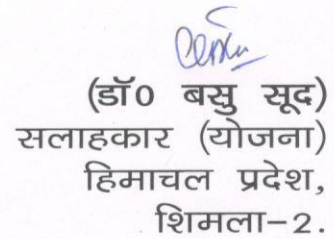 (डॉ0 बसु सूद)
सलाहकार (योजना)
हिमाचल प्रदेश,
शिमला-2.